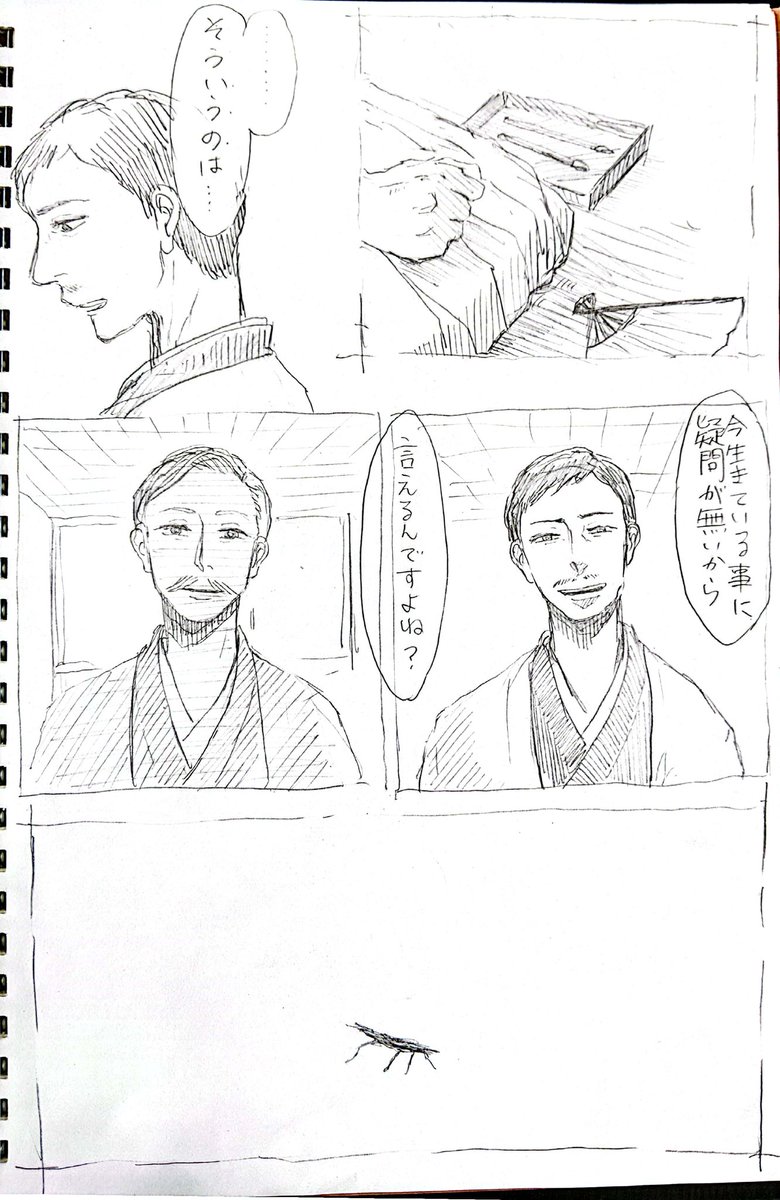 ………
そういうのは…
今生きている事に
疑問が無いから
言えるんですよね？